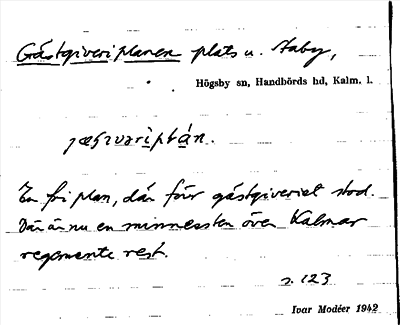 Gästgiveriplanen plats u. Staby,
Högsby sn, Handbörds hd, Kalm. l.
jæʃivəriplán.
En fri plan, där förr gästgiveriet stod.
Där är nu en minnessten över Kalmar
regemente rest.
s. 123
Ivar Modéer 1942